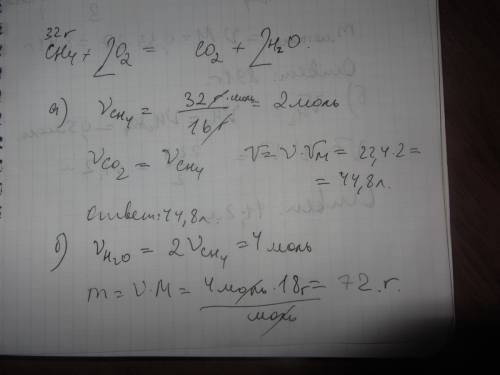 32г
CH₄ + 2O₂ = CO₂ + 2H₂O.
а) νCH₄ = 32г·моль/16г = 2 моль
νCO₂ = νCH₄ V = ν·Vм = 22,4·2 =
= 44,8л.
Ответ: 44,8л.
б) νH₂O = 2νCH₄ = 4 моль
m = ν·M = 4моль·18г/моль = 72 г.